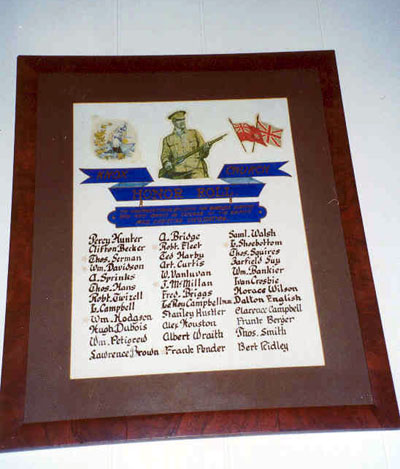 KNOX CHURCH
HONOR ROLL
Percy Hunter A. Bridge Saml. Walsh
Clifton Becker Robt. Fleet E. Shoebottom
Thos. Serman Ted Harby Thos. Squires
Wm. Davidson Art. Curtis Garfield Guy
A. Sprinks W. Vanluvan Wm. Bankier
Thos. Hans J. McMillan Ivan Crosbie
Robt. Twizell Fred. Briggs Horace Wilson
L. Campbell LeRoy Campbell Dalton English
Wm. Hodgson Stanley Hustler Clarence Campbell
Hugh Dubois Alex. Houston Frank Berger
Wm. Petigrew Albert Wraith Thos. Smith
Lawrence Brown Frank Pender Bert Ridley